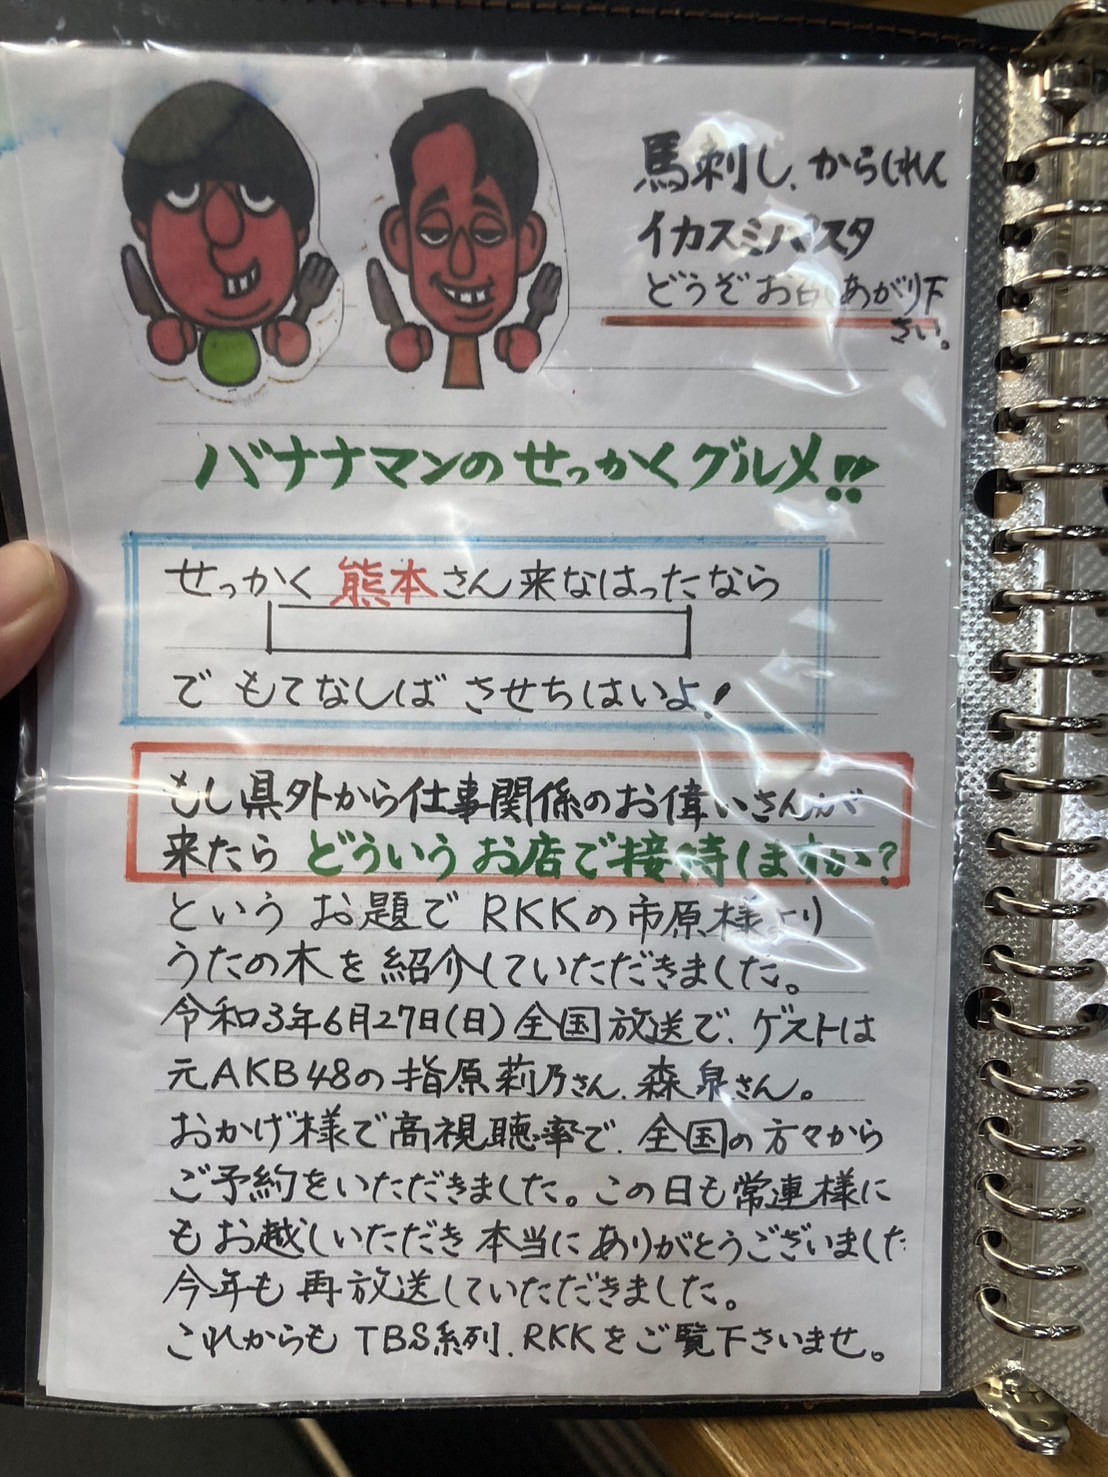 馬刺し、からしれん
イカスミパスタ
どうぞお召しあがり下
さい。
バナナマンのせっかくグルメ!!
せっかく熊本さん来なはったなら
でもてなしばさせちはいよ!
もし県外から仕事関係のお偉いさんが
来たらどういうお店で接待しますか?
というお題でRKKの市原様より
うたの木を紹介していただきました。
令和3年6月27日(日)全国放送で、ゲストは
元AKB48の指原莉乃さん、森泉さん。
おかげ様で高視聴率で、全国の方々から
ご予約をいただきました。この日も常連様に
もお越しいただき本当にありがとうございました
今年も再放送していただきました。
これからもTBS系列、RKKをご覧下さいませ。